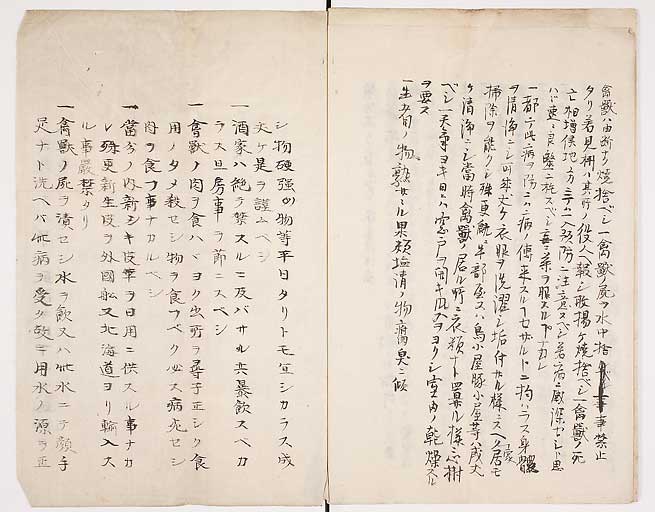 禽獣ハ由断ナク焼捨ベシ一禽獣ノ屍ヲ水中捨 事禁止
タリ若見柵ハ其所ノ役人ヘ報シ取揚ケ焼捨ベシ一禽獣ノ死
亡相増候地方ニテハ予防ニ注意スベシ若病ニ感深セシト思
ハヾ速ニ良醫ニ托スベシ ニ薬ヲ服スルナカレ
一都テ此病ヲ防ニハ病ノ傳来スルトセザルトニ拘ハラス身體
ヲ清浄ニシ可成丈ケ衣服ヲ洗濯シ垢付サル様ニスヘク居宅モ
掃除ヲ能クシ殊更 部屋又ハ鳥小屋豚小屋等ハ成丈
ケ清浄ニシ當時禽獣ノ居ル所ニ衣類ナト置サル様 心掛
ベシ一天氣ヨキ日ハ窓戸ヲ開キ風入ヲヨクシ室内ノ乾燥スル
ヲ要ス
一生ナ肉ノ物熟セサル果類塩漬ノ物腐臭ニ傾
シ物硬强ノ物等平日タリトモ宜シカラス成
丈ケ是ヲ謹ムベシ
一酒家ハ絶テ禁スルニ及バサル共暴飲スベカ
ラス且房事ヲ節ニスベシ
一會獣ノ肉ヲ食ハヾヨク出所ヲ尋子正シク食
用ノタメ殺セシ物ヲ食フベク必ス病死セシ
肉ヲ食フ事ナカルベシ
一當分ノ内新シキ皮革ヲ日用ニ供スル事ナカ
レ殊更新生皮ヲ外國船又北海道ヨリ輸入ス
ル事嚴禁タリ
一禽獣ノ屍ヲ漬セシ水ヲ飲又ハ此水ニテ顔手
足ナト洗ヘバ此病ヲ受ク故ニ用水ノ源ヲ正